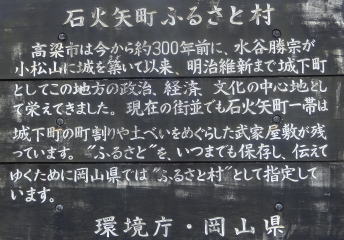 石火矢町ふるさと村
高梁市は今から約300年前に、水谷勝宗が
小松山に城を築いて以来、明治維新まで城下町
としてこの地方の政治、経済、文化の中心地とし
て栄えてきました。現在の街並でも石火矢町一帯は
城下町の町割りや土べいをめぐらした武家屋敷が残
っています。〝ふるさと〟を、いつまでも保存し、伝えて
ゆくために岡山県では〝ふるさと村〟として指定して
います。
環境庁・岡山県